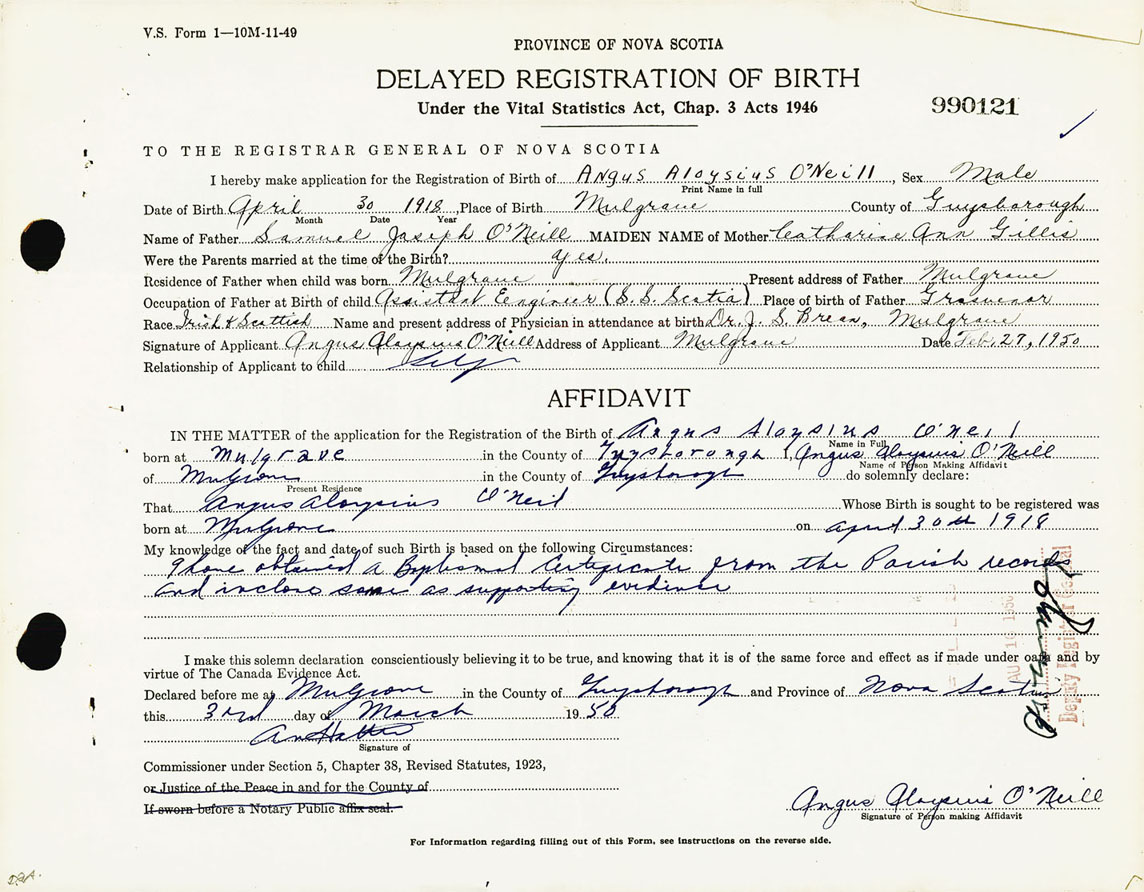 V.S. Form 1—10M-11-49
PROVINCE OF NOVA SCOTIA
DELAYED REGISTRATION OF BIRTH
Under the Vital Statistics Act, Chap. 3 Acts 1946
990121
TO THE REGISTRAR GENERAL OF NOVA SCOTIA
I hereby make application for the Registration of Birth of Angus Aloysius O'Neill, Sex Male
Print Name in full
Date of Birth April 30 1918, Place of Birth Mulgrave County of Guysborough
Month Date Year
Name of Father Samuel Joseph O'Neill MAIDEN NAME of Mother Catharine Ann Gillis
Were the Parents married at the time of the Birth? Yes.
Residence of Father when child was born Mulgrave Present address of Father Mulgrave
Occupation of Father at Birth of child Assistant Engineer (S.S. Scotia) Place of birth of Father Grosvenor
Race Irish & Scottish Name and present address of Physician in attendance at birth Dr. J. S. Brean, Mulgrave
Signature of Applicant Angus Aloysius O'Neill Address of Applicant Mulgrave Date Feb. 27, 1950
Relationship of Applicant to child Self
AFFIDAVIT
IN THE MATTER of the application for the Registration of the Birth of Angus Aloysius O'Neil
Name in Full
born at Mulgrave in the County of Guysborough I, Angus Aloysius O'Neill
Name of Person Making Affidavit
of Mulgrave in the County of Guysborough do solemnly declare:
Present Residence
That Angus Aloysius O'Neil Whose Birth is sought to be registered was
born at Mulgrave on April 30th 1918
My knowledge of the fact and date of such Birth is based on the following Circumstances:
I have obtained a Baptismal Certificate from the Parish records
and inclose same as supporting evidence
I make this solemn declaration conscientiously believing it to be true, and knowing that it is of the same force and effect as if made under oath and by
virtue of The Canada Evidence Act.
Declared before me at Mulgrave in the County of Guysborough and Province of Nova Scotia
this 3rd day of March 1950
Signature of
Commissioner under Section 5, Chapter 38, Revised Statutes, 1923,
or Justice of the Peace in and for the County of
If sworn before a Notary Public affix seal.
Angus Aloysius O'Neill
Signature of Person making Affidavit
For Information regarding filling out of this Form, see instructions on the reverse side.
Deputy Registrar General